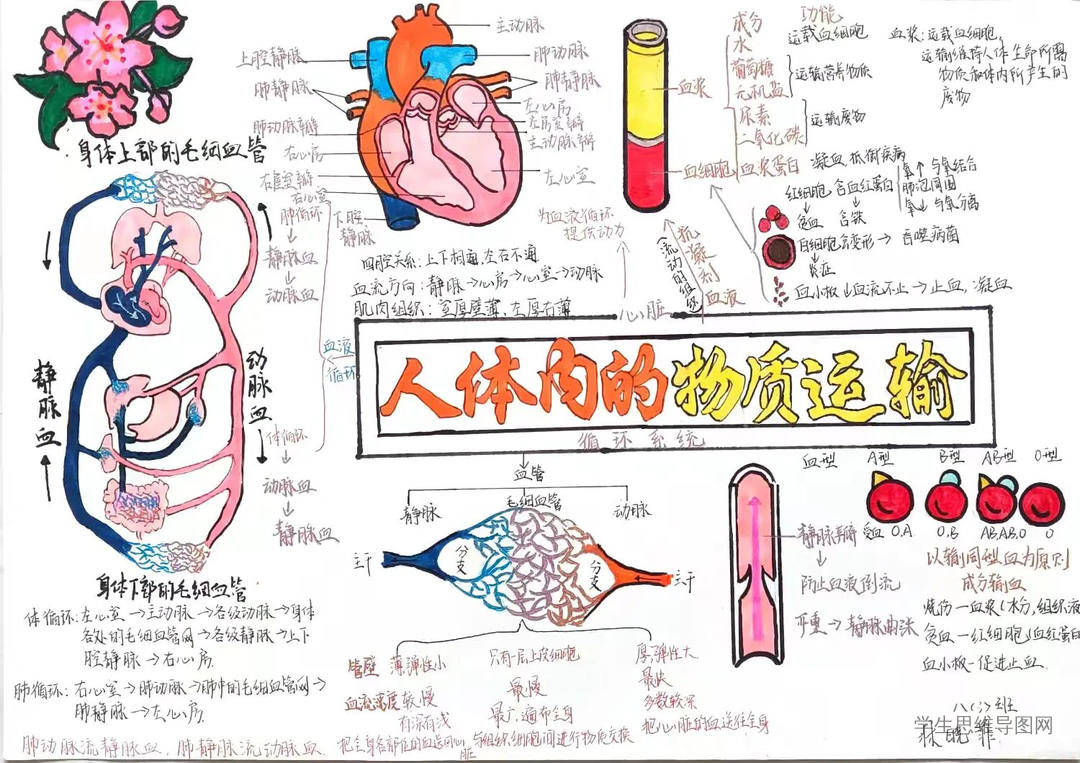 身体上部的毛细血管
静脉血
动脉血
身体下部的毛细血管
体循环：左心室→主动脉→各级动脉→身体
各处的毛细血管网→各级静脉→上下
腔静脉→右心房
肺循环：右心室→肺动脉→肺中的毛细血管网→
肺静脉→左心房
肺动脉流静脉血、肺静脉流动脉血
上腔静脉
肺静脉
肺动脉瓣
右心房
右房室瓣
右心室
下腔
静脉
主动脉
肺动脉
肺静脉
左心房
左房室瓣
主动脉瓣
左心室
肺循环
↓
静脉血
↓
动脉血
血液
循环
体循环
↓
动脉血
↓
静脉血
四腔关系：上下相通左右不通
血流方向：静脉→心房→心室→动脉
肌肉组织：室厚壁薄、左厚右薄
为血液循环
提供动力
心脏
抗凝剂
（流动的组织）
血液
血浆
血细胞
成分
水
葡萄糖
无机盐
尿素
二氧化碳
血浆蛋白
功能
运载血细胞
运输营养物质
运输废物
凝血 抵御疾病
血浆：运载血细胞，
运输维持人体生命所需
物质和体内所产生的
废物
红细胞→含血红蛋白
氧↑与氧结合
肺泡周围
氧↓与氧分离
贫血 含铁
白细胞 变形→吞噬病菌
炎症
血小板↓血流不止→止血，凝血
人体内的物质运输
循环系统
血管
静脉
毛细血管
动脉
主干
分支
分支
主干
管壁 薄弹性小
只有一层上皮细胞
厚弹性大
血流速度 较慢
最慢
最快
有深有浅
最广，遍布全身
多数较深
把全身各部位的血送回心脏
与组织细胞间进行物质交换
把心脏的血送往全身
静脉瓣
↓
防止血液倒流
严重→静脉曲张
血型 A型 B型 AB型 O型
受血 O.A O.B AB.A.B.O O
以输同型血为原则
成分输血
烧伤—血浆（水分，组织液
贫血—红细胞↓血红蛋白
血小板—促进止血
学生思维导图网